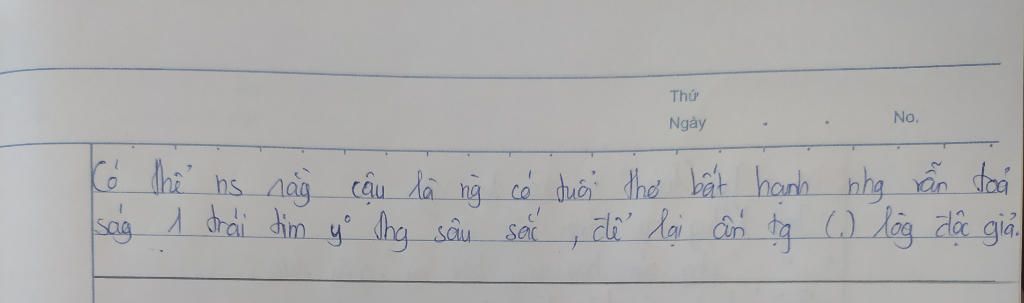 Thứ
Ngày . . No.
Có thể ns rằg cậu là ng̀ có tuổi thơ bất hạnh nhg vẫn toả
ság 1 trái tim yº thg sâu sắc, để lại ấn tg (.) lòg độc giả.